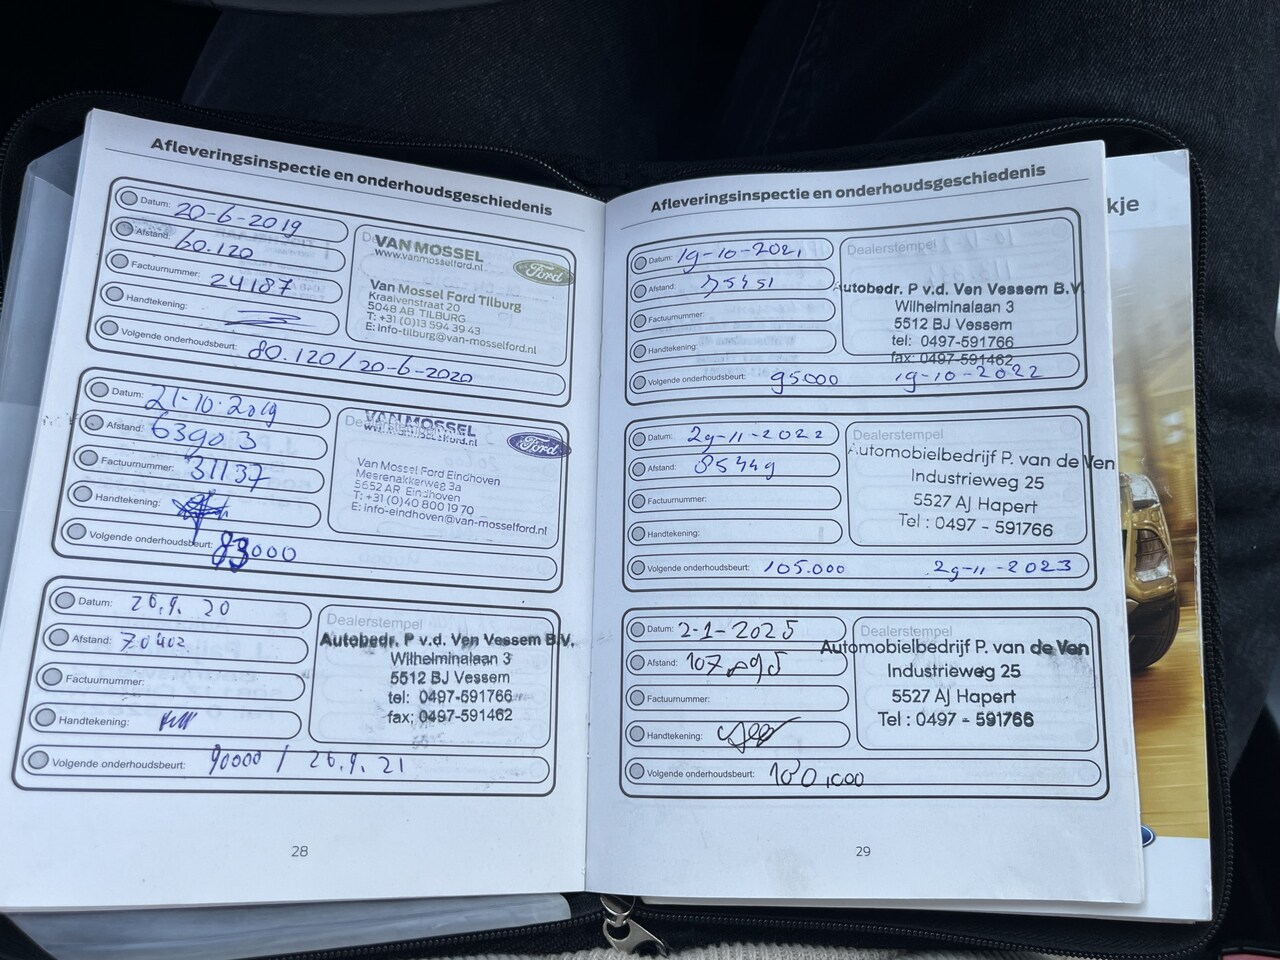 Afleveringsinspectie en onderhoudsgeschiedenis
Datum: 20-6-2019
Afstand: 60.120
Factuurnummer: 24187
Handtekening:
Volgende onderhoudsbeurt: 80.120 / 20-6-2020
VAN MOSSEL
www.vanmosselford.nl
Ford
Van Mossel Ford Tilburg
Kraaivenstraat 20
5048 AB TILBURG
T: +31 (0)13 594 39 43
E: Info-tilburg@van-mosselford.nl
Datum: 21-10-2019
Afstand: 63903
Factuurnummer: 31137
Handtekening:
Volgende onderhoudsbeurt: 83000
VAN MOSSEL
Ford
Van Mossel Ford Eindhoven
Meerenakkerweg 3a
5652 AR Eindhoven
T: +31 (0)40 800 19 70
E: info-eindhoven@van-mosselford.nl
Datum: 26.9.20
Afstand: 70402
Factuurnummer:
Handtekening:
Volgende onderhoudsbeurt: 90000 / 26.9.21
Dealerstempel
Autobedr. P v.d. Ven Vessem B.V.
Wilhelminalaan 3
5512 BJ Vessem
tel: 0497-591766
fax: 0497-591462
28
Afleveringsinspectie en onderhoudsgeschiedenis
Datum: 19-10-2021
Afstand: 75451
Factuurnummer:
Handtekening:
Volgende onderhoudsbeurt: 95000 19-10-2022
Dealerstempel
Autobedr. P v.d. Ven Vessem B.V.
Wilhelminalaan 3
5512 BJ Vessem
tel: 0497-591766
fax: 0497-591462
Datum: 29-11-2022
Afstand: 85449
Factuurnummer:
Handtekening:
Volgende onderhoudsbeurt: 105.000 29-11-2023
Dealerstempel
Automobielbedrijf P. van de Ven
Industrieweg 25
5527 AJ Hapert
Tel : 0497 - 591766
Datum: 2-1-2025
Afstand:
Factuurnummer:
Handtekening:
Volgende onderhoudsbeurt:
Dealerstempel
Automobielbedrijf P. van de Ven
Industrieweg 25
5527 AJ Hapert
Tel : 0497 - 591766
29
kje